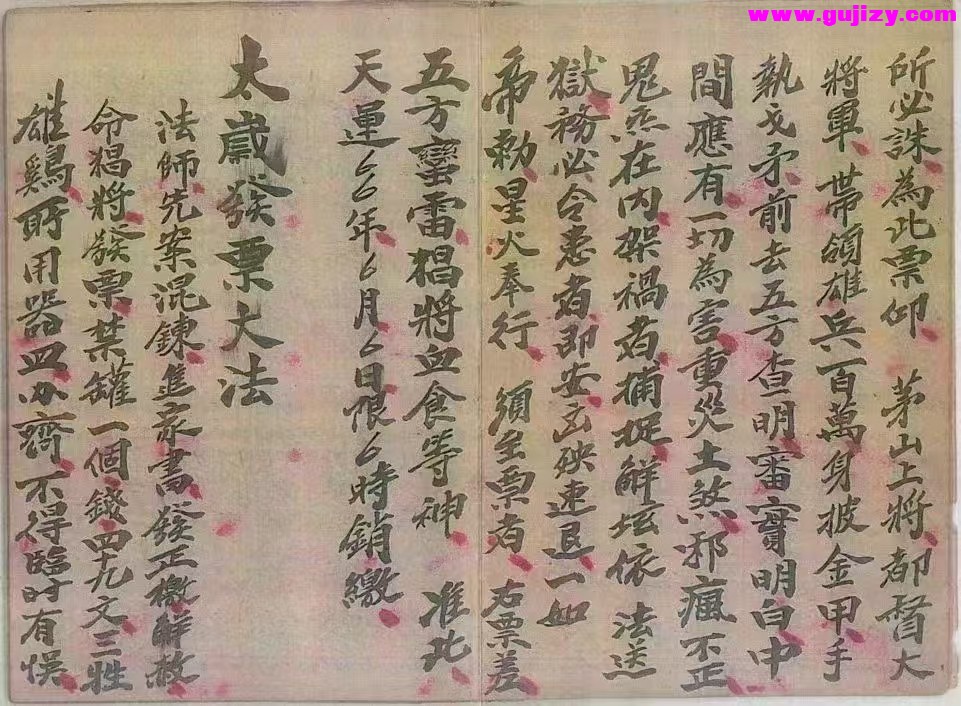 www.gujizy.com
所必誅為此票仰 茅山上將都督大
將軍帶領雄兵一百萬身披金甲手
執戈矛前去五方查明審實明白中
間應有一切為害重災土煞邪瘋不正
鬼杰在内架禍者捕捉解坛依法送
獄務必令患者即安玄殃速退一如
帝勅星火奉行 須至票者 右票差
五方蠻雷猖將血食等神 准此
天運 年 月 日限 時銷繳
太歲發票大法
法師先案混錬進家書發正檄解赦
命猖將發票禁罐一個錢四十九文三牲
雄鷄所用器皿办齊不得臨时有悮